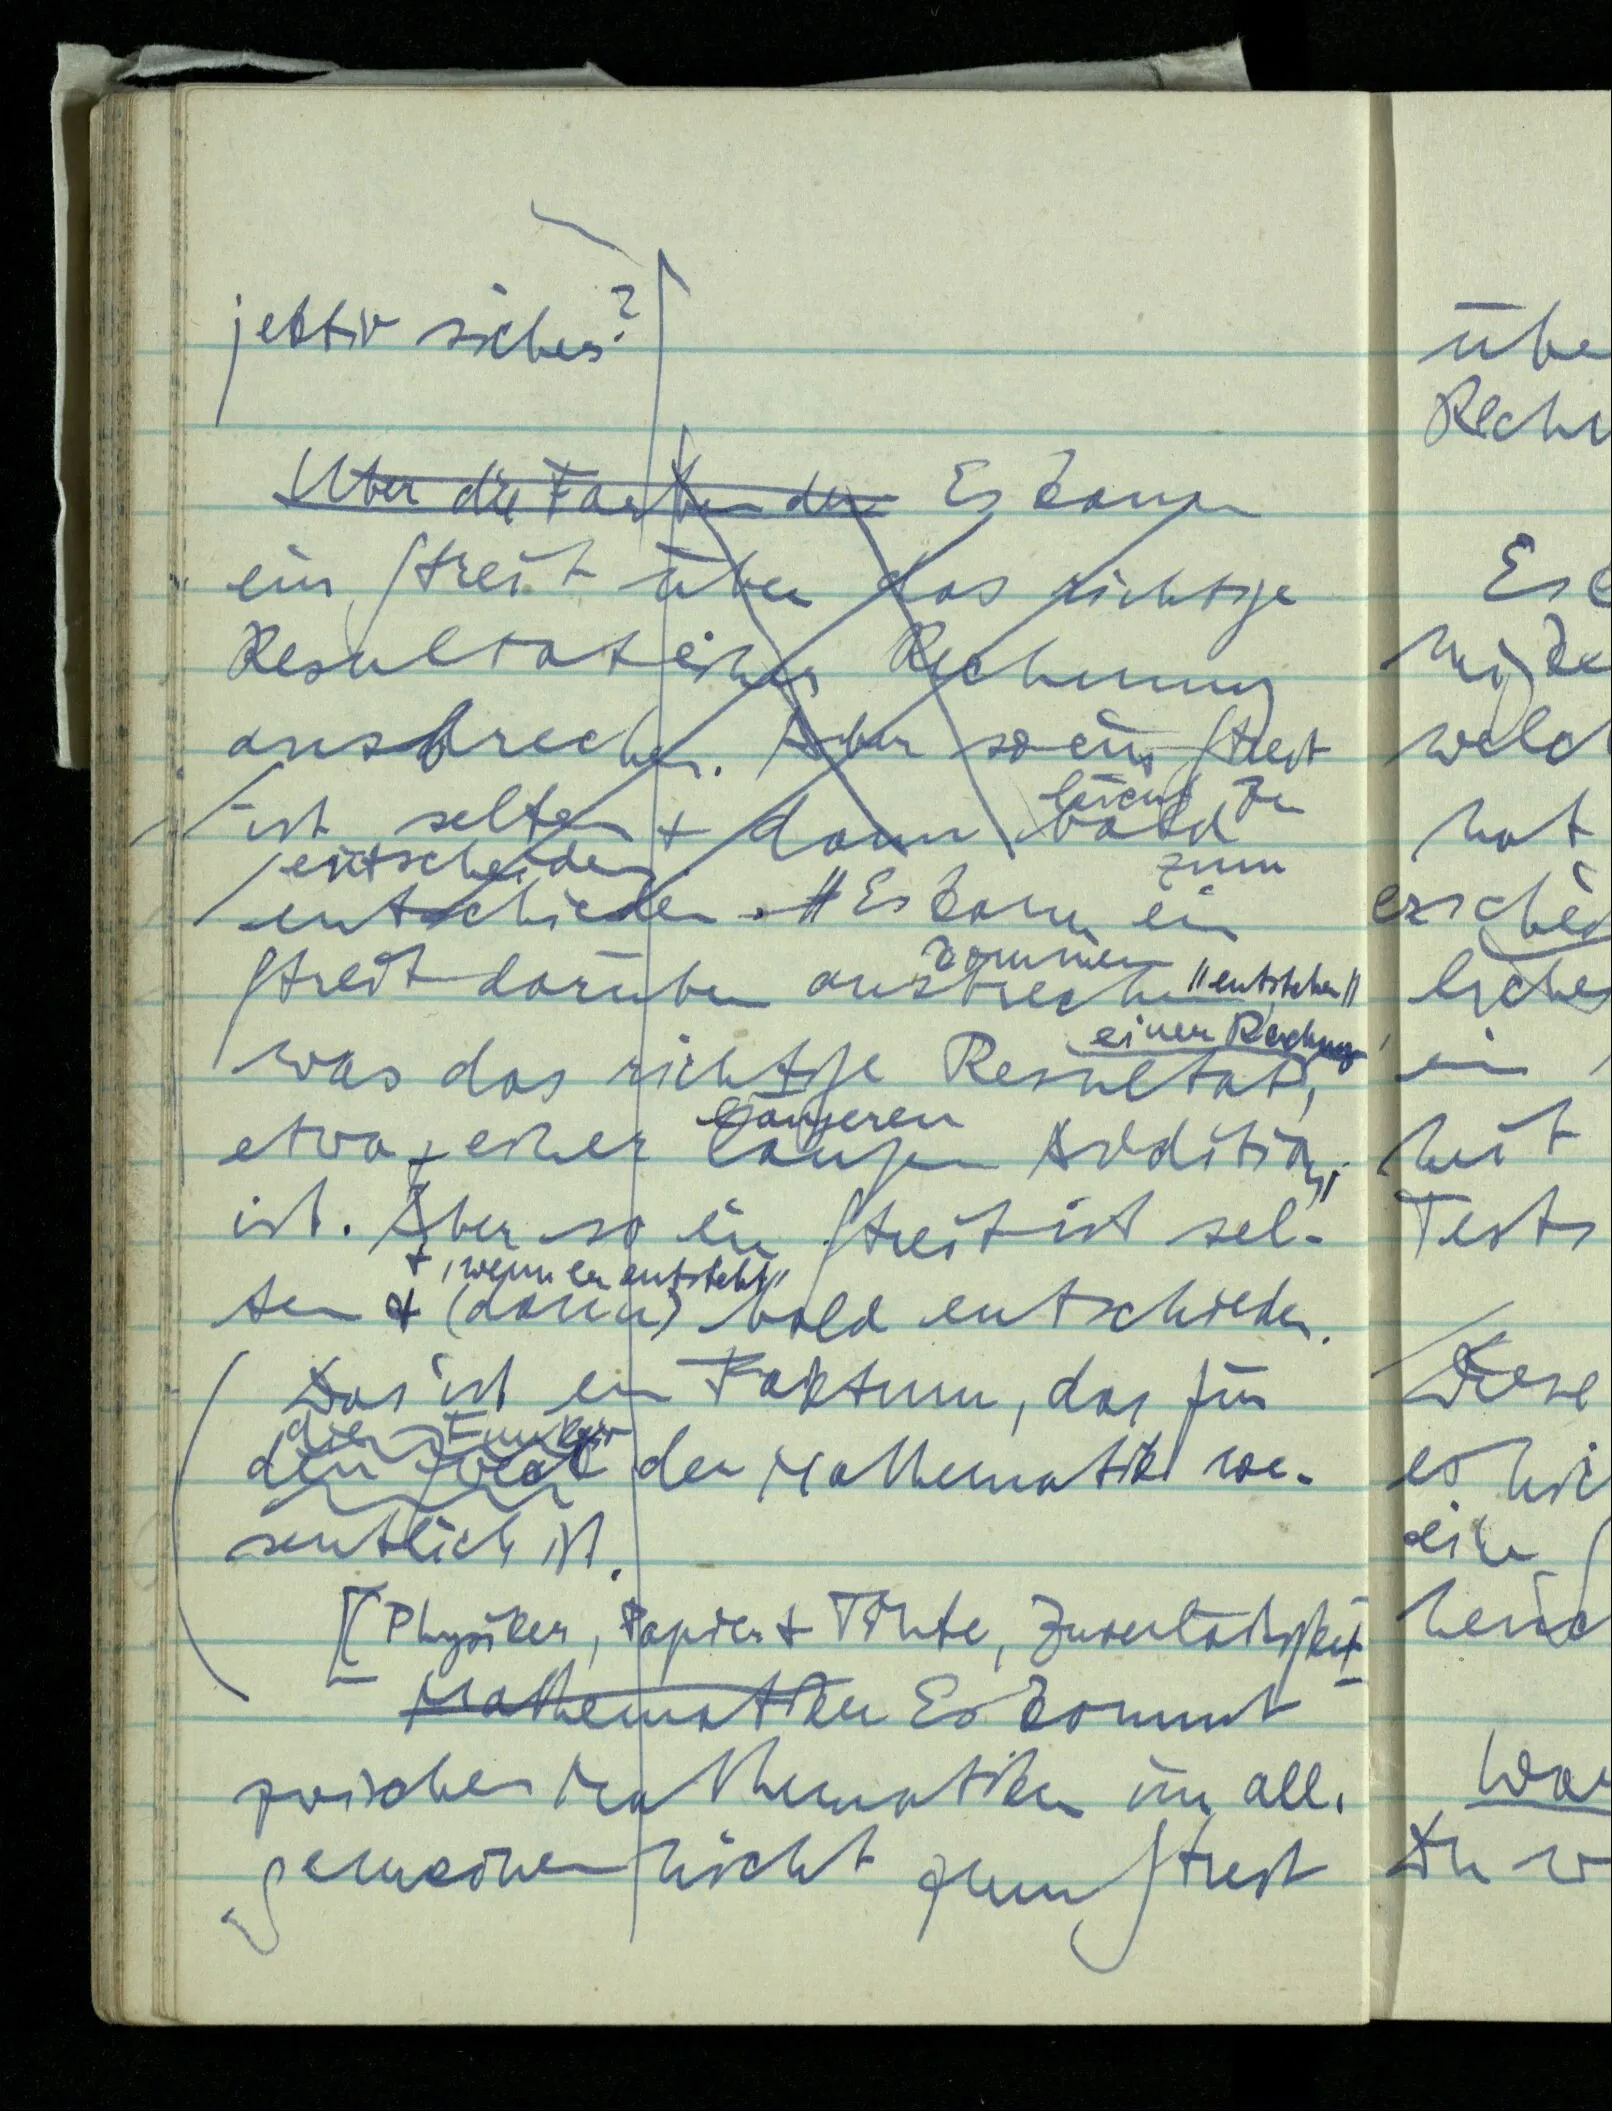 jektiv sicher?
Über die Farben der Es kann
ein Streit über das richtige
Resultat einer Rechnung
ausbrechen. Aber so ein Streit
leicht zu
ist selten + dann bald
entscheiden.
zum
entschieden. // Es kann ein
kommen
Streit darüber ausbrechen "entstehen"
einer Rechnung
was das richtige Resultat,
längeren
etwa, einer langen Addition,
ist. Aber so ein Streit ist sel-
+, wenn er entsteht,
ten + (dann) bald entschieden.
Das ist ein Faktum, das für
die Funktion
den Zweck der Mathematik we-
sentlich ist.
[Physiker, Papier + Tinte, Zuverlässigkeit
Mathematiker Es kommt
zwischen Mathematikern im all-
gemeinen nicht zum Streit
übe
Rechn
Es
welch
hat
erschei
licher
ein
heit
Tests
Diese
es
eine
War